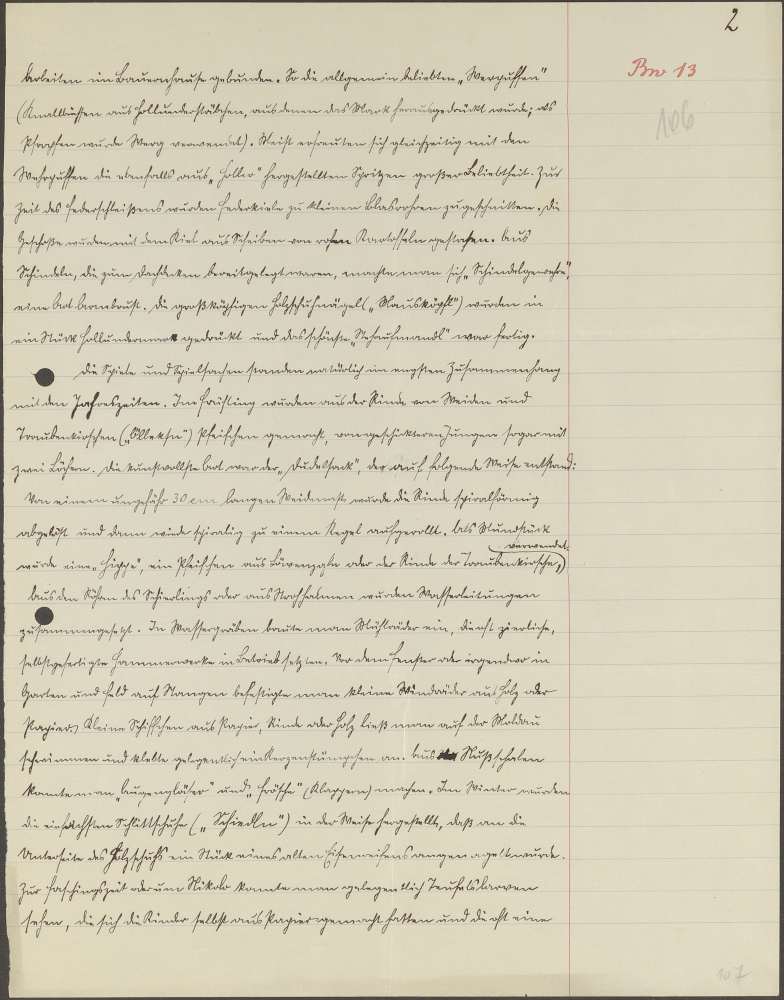 2
Bm 13
106
Arbeiten im Bauernhause gebunden. So die allgemein beliebten „Wergpuffen"
(Knallbüssen aus Hollunderstäbchen, aus denen das Mark herausgedrückt wurde; als
Pfropfen wurde Werg verwendet). Meist erfreuten sich gleichzeitig mit den
Wergpuffen die ebenfalls aus „Holler" hergestellten Spritzen großer Beliebtheit. Zur
Zeit des Federschleißens wurden Federkiele zu kleinen Blasrohren zugeschnitten. Die
Geschoße wurden mit dem Kiel aus Scheiben von rohen Kartoffeln gestochen. Aus
Schindeln, die zum Dachdecken bereitgelegt waren, machte man sich „Schindelgewehre",
eine Art Armbrust. Die großköpfigen Holzschuhnägel („Mausköpfl") wurden in
ein Stück Hollundermark gedrückt und das schönste „Stehaufmandl" war fertig.
Die Spiele und Spielsachen standen natürlich im engsten Zusammenhang
mit den Jahreszeiten. Im Frühling wurden aus der Rinde von Weiden und
Traubenkirschen („Ölleksn") Pfeifchen gemacht, von geschickteren Jungen sogar mit
zwei Löchern. Die kunstvollste Art war der „Dudelsack", der auf folgende Weise entstand:
Von einem ungefähr 30 cm langen Weidenast wurde die Rinde spiralförmig
abgelöst und dann wieder spiralig zu einem Kegel aufgerollt. Als Mundstück
wurde eine „Hippe", ein Pfeifchen aus Löwenzahn oder der Rinde der Traubenkirsche, verwendet.
Aus den Röhren des Schierlings oder aus Strohhalmen wurden Wasserleitungen
zusammengesetzt. In Wassergräben baute man Mühlräder ein, die oft zierliche,
selbstgefertigte Hammerwerke in Betrieb setzten. Vor dem Fenster oder irgendwo in
Garten und Feld auf Stangen befestigte man kleine Windräder aus Holz oder
Papier. Kleine Schiffchen aus Papier, Rinde oder Holz ließ man auf der Moldau
schwimmen und klebte gelegentlich ein Kerzenstümpchen an. Aus Nußschalen
konnte man „Augengläser" und „Frösche" (Klappern) machen. Im Winter wurden
die einfachsten Schlittschuhe („Schiedln") in der Weise hergestellt, daß an die
Unterseite des Holzschuhs ein Stück eines alten Eisenreifens angenagelt wurde.
Zur Faschingszeit oder um Nikolo konnte man gelegentlich Teufelslarven
sehen, die sich die Kinder selbst aus Papier gemacht hatten und die oft eine
107